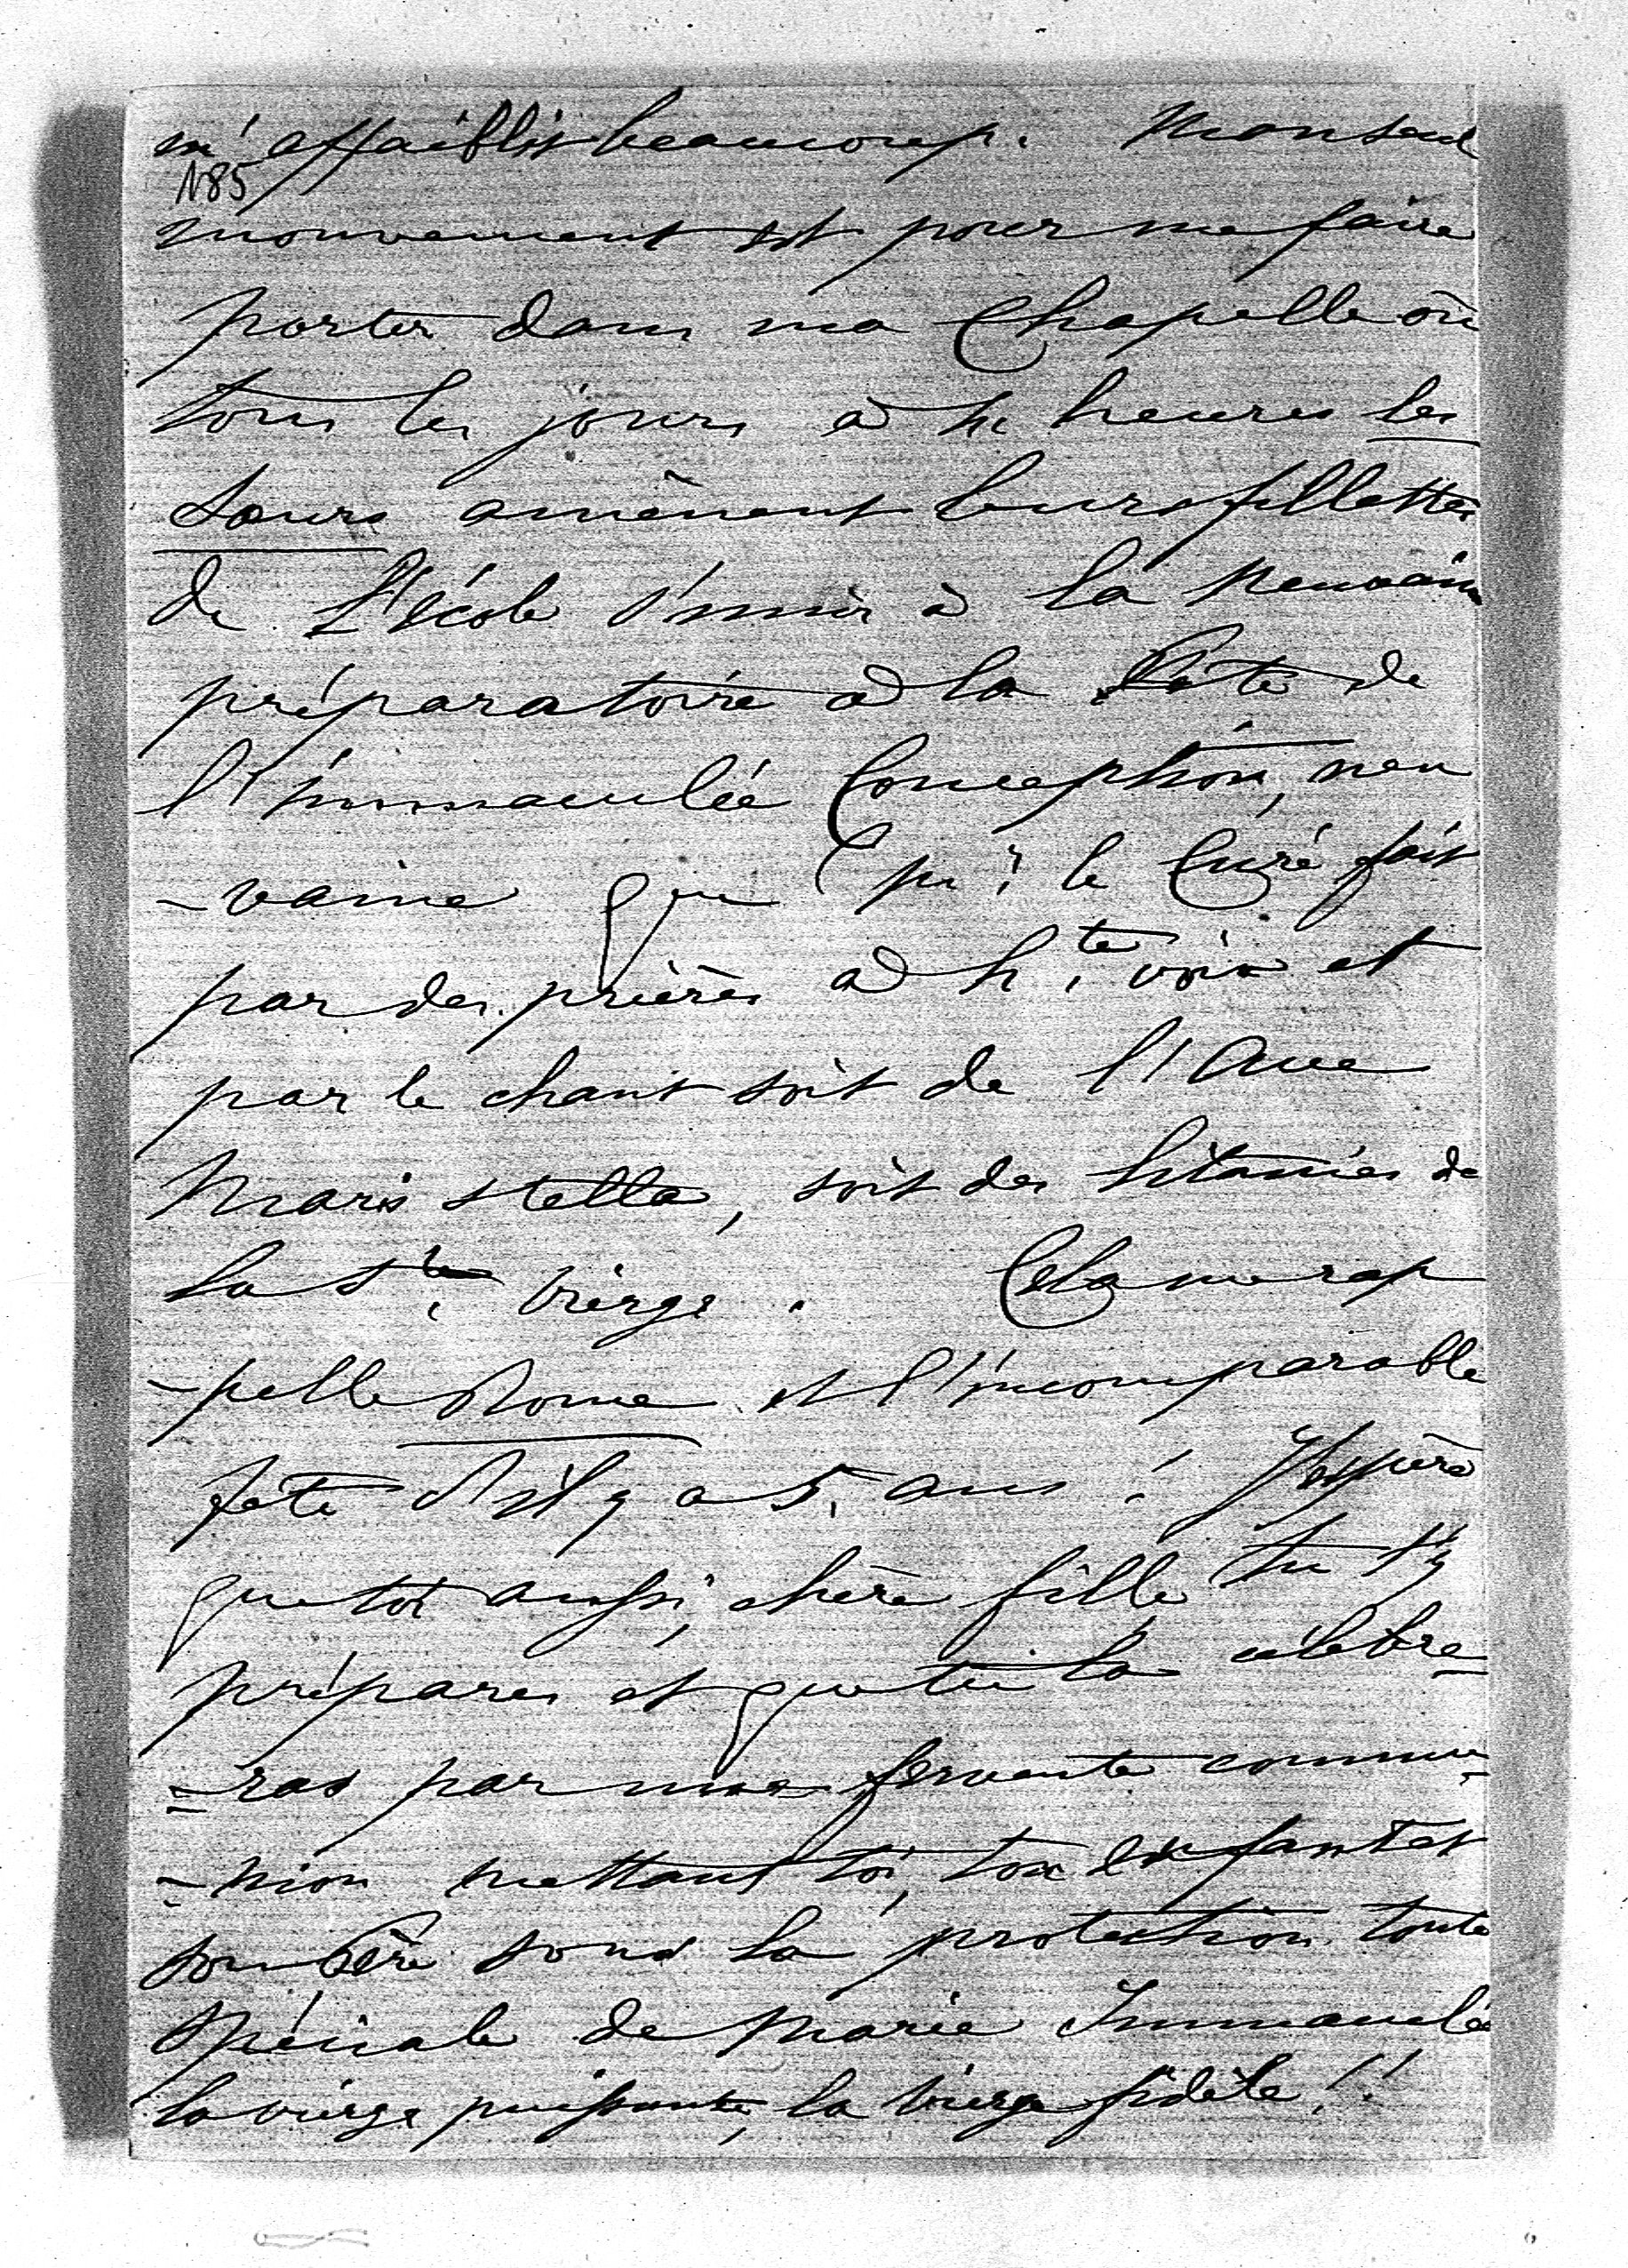 m'affaiblis beaucoup. Mon seul
N85
mouvement est pour me faire
porter dans ma Chapelle où
tous les jours à 4 heures les
Sœurs amènent leurs fillettes
de L'école s'unir à la Neuvaine
préparatoire à la fête de
l'immaculée Conception, neu
-vaine que Mr le Curé fait
par des prières à hte voix et
par le chant soit de l'Ave
Maris stella, soit des Litanies de
la Ste Vierge. Cela me rap
-pelle Rome et l'incomparable
fête d'il y a 5 ans! J'espère
que toi aussi, chère fille tu t'y
prépares et que tu la célèbre-
-ras par une fervente commu-
-nion mettant toi, ton enfant et
son Père sous la protection toute
spéciale de Marie Immaculée
la vierge puissante, la vierge fidèle!!